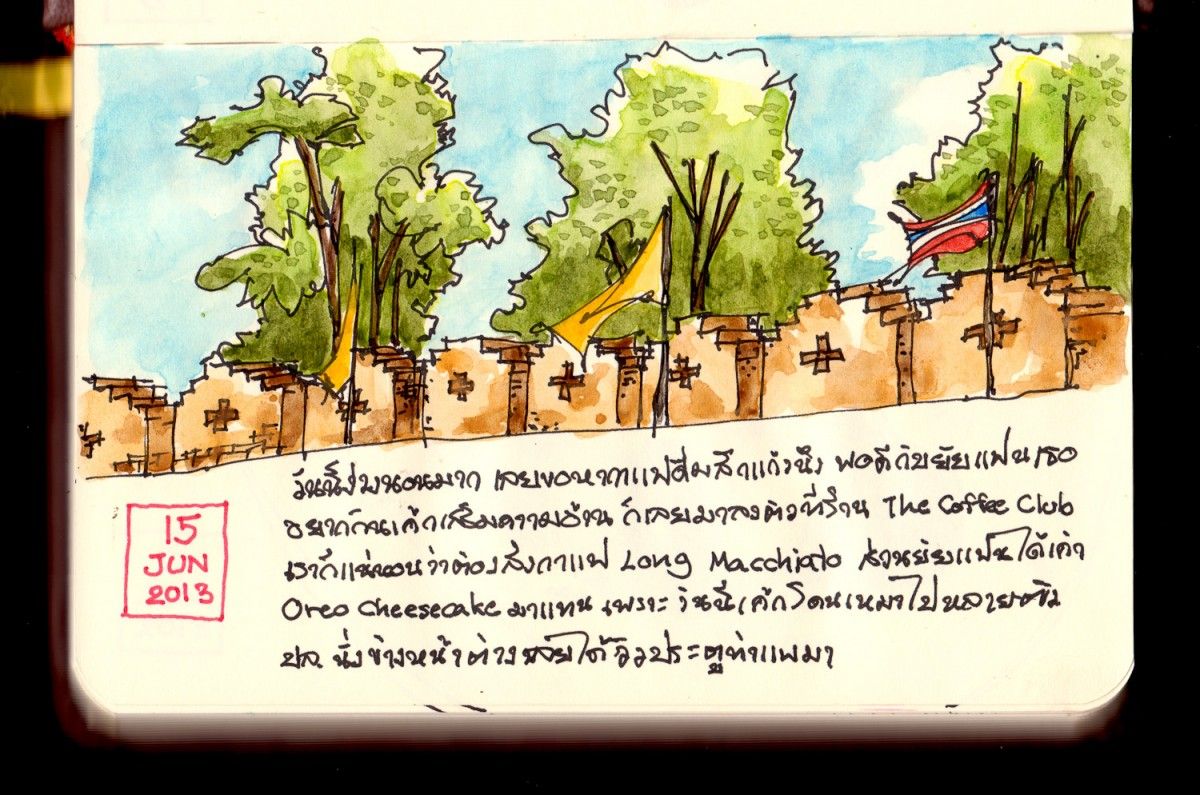 15
JUN
2013
วันนี้ง่วงนอนมาก เลยขอหากาแฟดื่มสักแก้วนึง พอดีกับยัยแฟนเธอ
อยากกินเค้กเสริมความอ้วน ก็เลยมาลงตัวที่ร้าน The Coffee Club
เราก็แน่นอนว่าต้องสั่งกาแฟ Long Macchiato ส่วนยัยแฟนได้เค้ก
Oreo Cheesecake มาแทน เพราะวันนี้เค้กโดนเหมาไปหลายชิ้น
ปล. นั่งข้างหน้าต่างเลยได้วิวประตูท่าแพมา